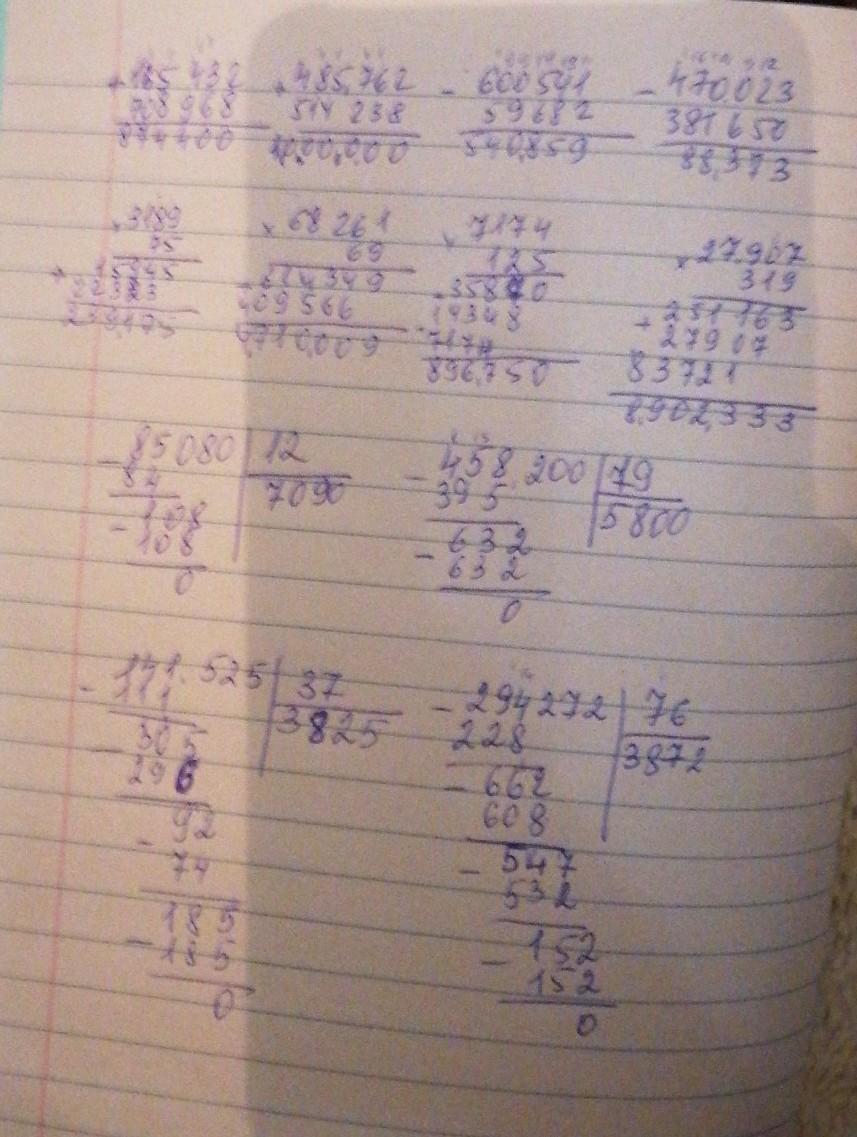 +165 432
708 968
874400
+485.762
514 238
1000.000
- 600541
59682
540.859
- 470.023
381650
88.373
×3189
75
+15945
22323
239.175
×68261
69
+614349
409566
4.710.009
×7174
125
+35870
14348
7174
896.750
×27.907
319
+251163
27907
83721
8.902.333
-85080 12
84 7090
-108
108
0
-458.200 79
395 5800
-632
632
0
-141.525 37
111 3825
-305
296
-92
74
-185
185
0
-294272 76
228 3872
-662
608
-547
532
-152
152
0